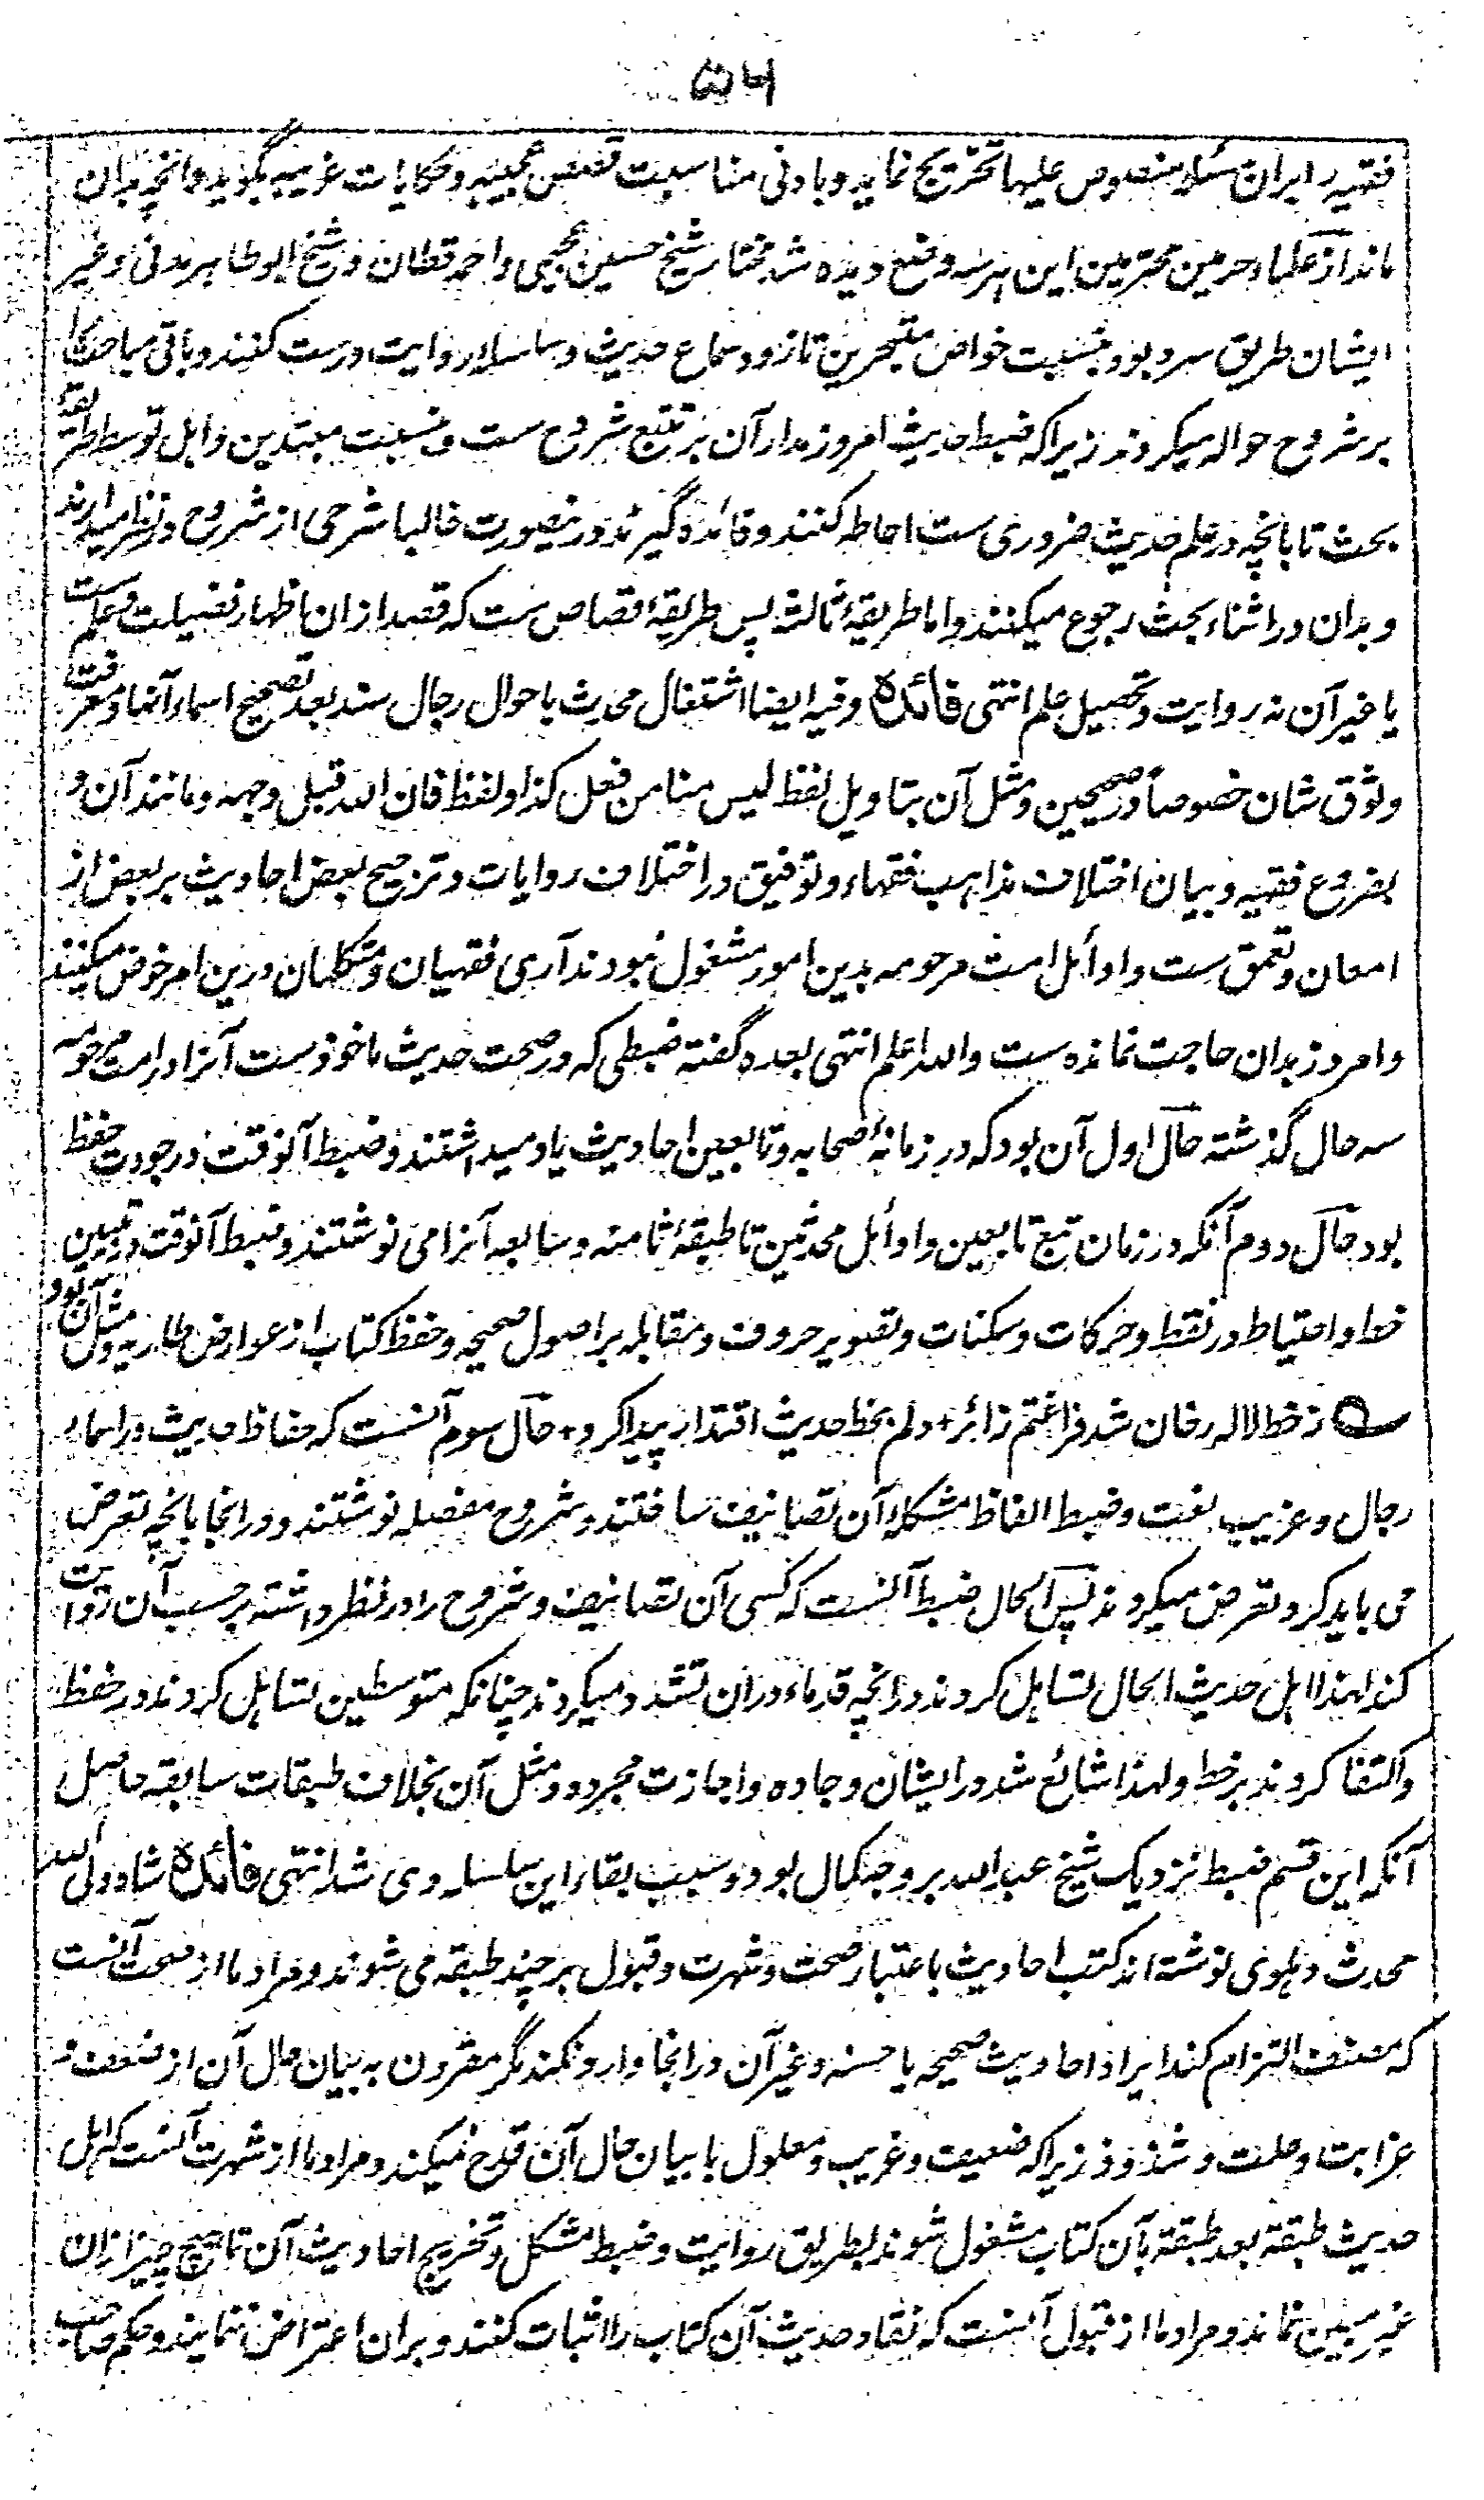 ۵۶
فقهیه را بران مسئله منصوص علیها تخریج نماید و بادنی مناسبت قصص عجیبه و حکایات غریبه بگوید و انچه بدان
ماند از علماء حرمین محترمین این هر سه وضع دیده شد مختار شیخ حسین عجیمی و احمد قطان و شیخ ابو طاهر مدنی و غیر
ایشان طریق سرد بود بنسبت خواص متبحرین تا زود سماع حدیث و سلسله روایت درست کنند و باقی مباحث را
بر شروح حواله میکردند زیرا که ضبط حدیث امروز مدار آن بر تتبع شروح ست و بنسبت مبتدین و اهل توسط طریقهٔ
بحث تا بانچه در علم حدیث ضروری ست احاطه کنند و فائده گیرند و درینصورت غالبا شرحی از شروح در نظر میدارند
و بدان در اثناء بحث رجوع میکنند و اما طریقهٔ ثالثه پس طریقهٔ قصاص ست که قصد ازان اظهار فضیلت و علم ست
یا غیر آن نه روایت و تحصیل علم انتهی فائده و فیه ایضا اشتغال محدث باحوال رجال سند بعد تصحیح اسماء آنها و معرفت
وثوق شان خصوصاً در صحیحین و مثل آن بتاویل لفظ لیس منا من فعل کذا و لفظ فان الله قبل وجهه و مانند آن و
بفروع فقیه و بیان اختلاف مذاهب فقهاء و توفیق در اختلاف روایات و ترجیح بعض احادیث بر بعض از
امعان و تعمق ست و اوائل امت مرحومه بدین امور مشغول نبودند آری فقهیان و متکلمان درین امر خوض میکنند
و امروز بدان حاجت نمانده ست والله اعلم انتهی بعده گفته ضبطی که در صحت حدیث ماخوذ ست آنرا در امت مرحومه
سه حال گذشته حال اول آن بود که در زمانهٔ صحابه و تابعین احادیث یاد میداشتند و ضبط آنوقت در جودت حفظ
بود حال دوم آنکه در زمان تبع تابعین و اوائل محدثین تا طبقهٔ ثامنه و سابعه آنرا می نوشتند و ضبط آنوقت در تبیین
خط و احتیاط در نقط و حرکات و سکنات و تصویر حروف و مقابله بر اصول صحیحه و حفظ کتاب از عوارض طاریه و مثل آن بود
ز خط لاله رخان شد فراغتم زائر + دلم بخط حدیث اقتدار پیدا کرد + حال سوم آنست که حفاظ حدیث در اسماء
رجال و غریب لغت و ضبط الفاظ مشکلهٔ آن تصانیف ساختند و شروح مفصله نوشتند و در انجا بانچه تعرض
می باید کرد تعرض میکردند پس الحال ضبط آنست که کسی آن تصانیف و شروح را در نظر داشته بر حسب آن روایت
کند لهذا اهل حدیث الحال تساهل کردند در انچه قدماء دران تشدد میکردند چنانکه متوسطین تساهل کردند در حفظ
و اکتفا کردند بر خط و لهذا شائع شد در ایشان وجاده و اجازت مجرده و مثل آن بخلاف طبقات سابقه حاصل
آنکه این قسم ضبط نزدیک شیخ عبد الله بر وجه کمال بود و سبب بقاء این سلسله وی شد انتهی فائده شاه ولی الله
محدث دهلوی نوشته اند کتب احادیث باعتبار صحت و شهرت و قبول بر چند طبقه می شوند و مراد ما از صحت آنست
که مصنف التزام کند ایراد احادیث صحیحه یا حسنه و غیر آن در انجا وارد نکند مگر مقرون به بیان حال آن از ضعف و
غرابت و علت و شذوذ زیرا که ضعیف و غریب و معلول با بیان حال آن قدح نمیکند و مراد ما از شهرت آنست که اهل
حدیث طبقة بعد طبقة بآن کتاب مشغول شوند بطریق روایت و ضبط مشکل و تخریج احادیث آن تا هیچ چیز ازان
غیر مبین نماند و مراد ما از قبول آنست که نقاد حدیث آن کتاب را اثبات کنند و بران اعتراض ننمایند و حکم صاحب